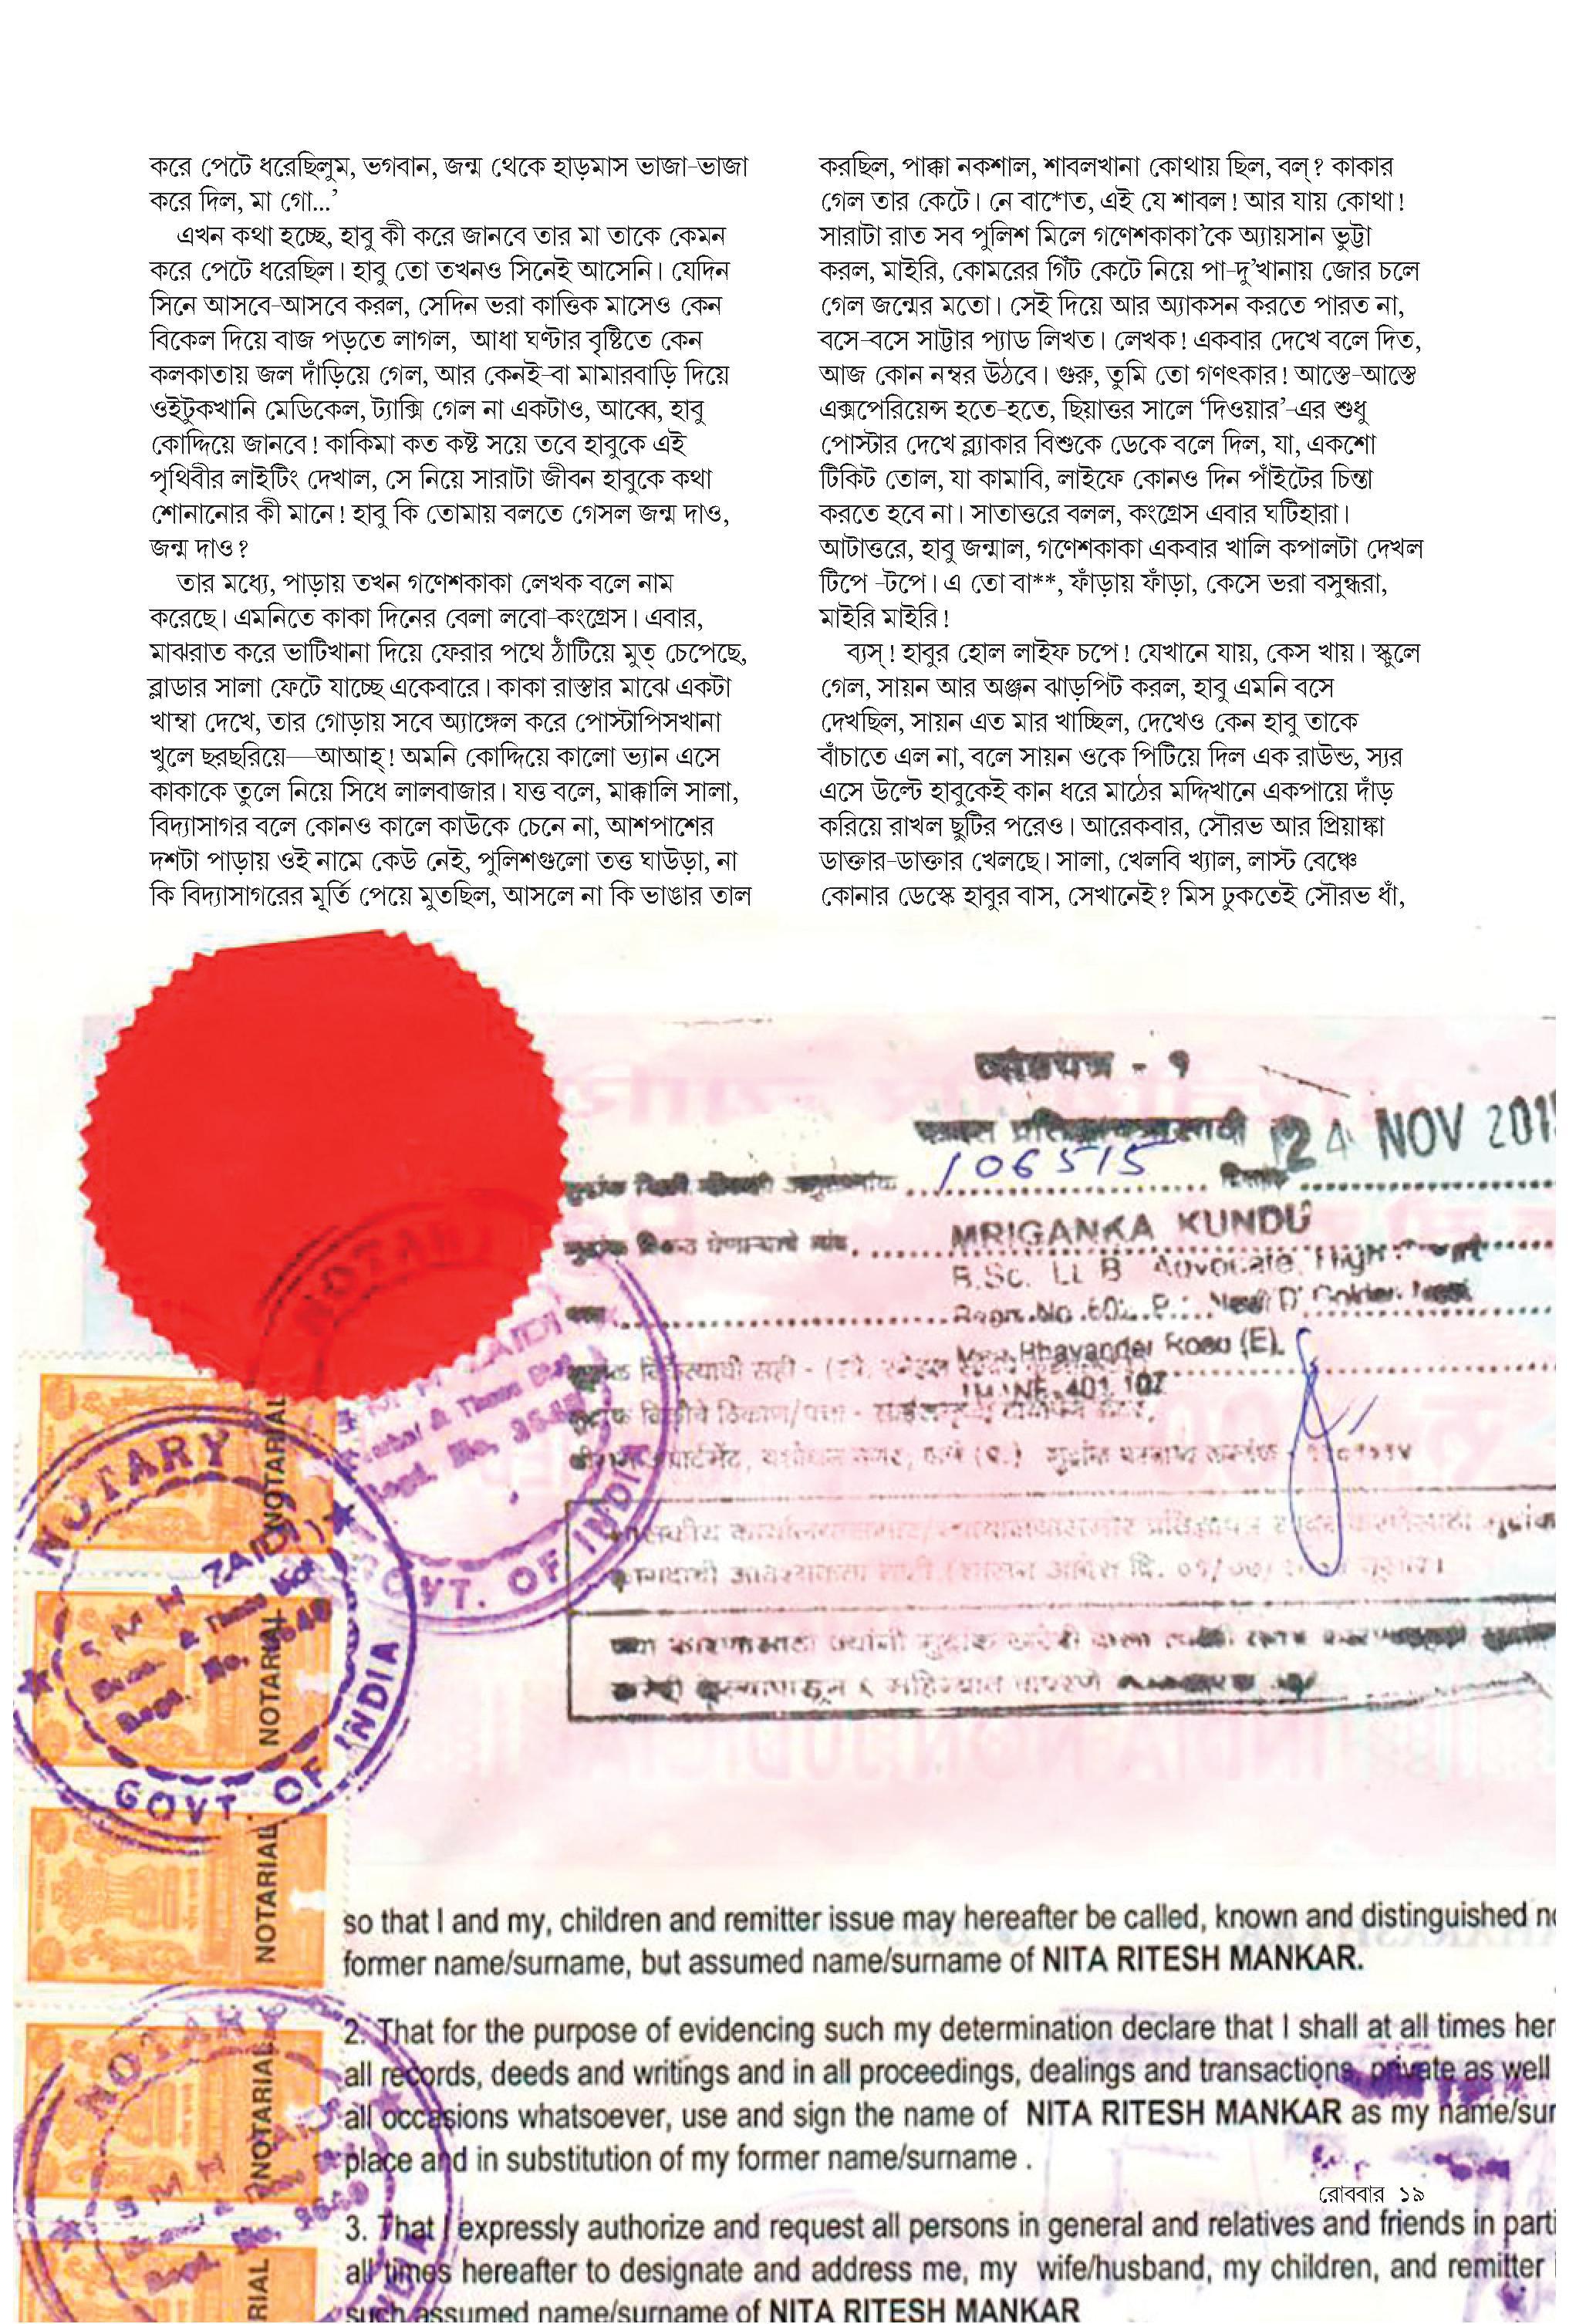 করে পেটে ধরেছিলুম, ভগবান, জন্ম থেকে হাড়মাস ভাজা-ভাজা
করে দিল, মা গো...’
এখন কথা হচ্ছে, হাবু কী করে জানবে তার মা তাকে কেমন
করে পেটে ধরেছিল। হাবু তো তখনও সিনেই আসেনি। যেদিন
সিনে আসবে-আসবে করল, সেদিন ভরা কাত্তিক মাসেও কেন
বিকেল দিয়ে বাজ পড়তে লাগল, আধা ঘণ্টার বৃষ্টিতে কেন
কলকাতায় জল দাঁড়িয়ে গেল, আর কেনই-বা মামারবাড়ি দিয়ে
ওইটুকখানি মেডিকেল, ট্যাক্সি গেল না একটাও, আব্বে, হাবু
কোদ্দিয়ে জানবে! কাকিমা কত কষ্ট সয়ে তবে হাবুকে এই
পৃথিবীর লাইটিং দেখাল, সে নিয়ে সারাটা জীবন হাবুকে কথা
শোনানোর কী মানে! হাবু কি তোমায় বলতে গেসল জন্ম দাও,
জন্ম দাও?
তার মধ্যে, পাড়ায় তখন গণেশকাকা লেখক বলে নাম
করেছে। এমনিতে কাকা দিনের বেলা লবো-কংগ্রেস। এবার,
মাঝরাত করে ভাটিখানা দিয়ে ফেরার পথে ঠাঁটিয়ে মুত্ চেপেছে,
ব্লাডার সালা ফেটে যাচ্ছে একেবারে। কাকা রাস্তার মাঝে একটা
খাম্বা দেখে, তার গোড়ায় সবে অ্যাঙ্গেল করে পোস্টাপিসখানা
খুলে ছরছরিয়ে—আআহ্! অমনি কোদ্দিয়ে কালো ভ্যান এসে
কাকাকে তুলে নিয়ে সিধে লালবাজার। যত্ত বলে, মাক্কালি সালা,
বিদ্যাসাগর বলে কোনও কালে কাউকে চেনে না, আশপাশের
দশটা পাড়ায় ওই নামে কেউ নেই, পুলিশগুলো তত্ত ঘাউড়া, না
কি বিদ্যাসাগরের মূর্তি পেয়ে মুতছিল, আসলে না কি ভাঙার তাল
করছিল, পাক্কা নকশাল, শাবলখানা কোথায় ছিল, বল্? কাকার
গেল তার কেটে। নে বা*শ্যেত, এই যে শাবল! আর যায় কোথা!
সারাটা রাত সব পুলিশ মিলে গণেশকাকা’কে অ্যায়সান ভুট্টা
করল, মাইরি, কোমরের গিঁট কেটে নিয়ে পা-দু’খানায় জোর চলে
গেল জন্মের মতো। সেই দিয়ে আর অ্যাকসন করতে পারত না,
বসে-বসে সাট্টার প্যাড লিখত। লেখক! একবার দেখে বলে দিত,
আজ কোন নম্বর উঠবে। গুরু, তুমি তো গণৎকার! আস্তে-আস্তে
এক্সপেরিয়েন্স হতে-হতে, ছিয়াত্তর সালে ‘দিওয়ার’-এর শুধু
পোস্টার দেখে ব্ল্যাকার বিশুকে ডেকে বলে দিল, যা, একশো
টিকিট তোল, যা কামাবি, লাইফে কোনও দিন পাঁইটের চিন্তা
করতে হবে না। সাতাত্তরে বলল, কংগ্রেস এবার ঘটিহারা।
আটাত্তরে, হাবু জন্মাল, গণেশকাকা একবার খালি কপালটা দেখল
টিপে -টপে। এ তো বা**, ফাঁড়ায় ফাঁড়া, কেসে ভরা বসুন্ধরা,
মাইরি মাইরি!
ব্যস্! হাবুর হোল লাইফ চপে! যেখানে যায়, কেস খায়। স্কুলে
গেল, সায়ন আর অঞ্জন ঝাড়পিট করল, হাবু এমনি বসে
দেখছিল, সায়ন এত মার খাচ্ছিল, দেখেও কেন হাবু তাকে
বাঁচাতে এল না, বলে সায়ন ওকে পিটিয়ে দিল এক রাউন্ড, স্যর
এসে উল্টে হাবুকেই কান ধরে মাঠের মদ্দিখানে একপায়ে দাঁড়
করিয়ে রাখল ছুটির পরেও। আরেকবার, সৌরভ আর প্রিয়াঙ্কা
ডাক্তার-ডাক্তার খেলছে। সালা, খেলবি খ্যাল, লাস্ট বেঞ্চে
কোনার ডেস্কে হাবুর বাস, সেখানেই? মিস ঢুকতেই সৌরভ ধাঁ,
24 NOV 201
106515
MRIGANKA KUNDU
B.Sc. LL B Advocate, High
Bhayander Road (E),
401 107
NOTARY
GOVT. OF INDIA
NOTARIAL
NOTARY
S M H ZAIDI
GOVT. OF INDIA
NOTARIAL
NOTARIAL
NOTARIAL
so that I and my, children and remitter issue may hereafter be called, known and distinguished
former name/surname, but assumed name/surname of NITA RITESH MANKAR.
2. That for the purpose of evidencing such my determination declare that I shall at all times her
all records, deeds and writings and in all proceedings, dealings and transactions, private as well
all occasions whatsoever, use and sign the name of NITA RITESH MANKAR as my name/sur
place and in substitution of my former name/surname .
রোববার ১৯
3. That I expressly authorize and request all persons in general and relatives and friends in parti
all times hereafter to designate and address me, my wife/husband, my children, and remitter
such assumed name/surname of NITA RITESH MANKAR